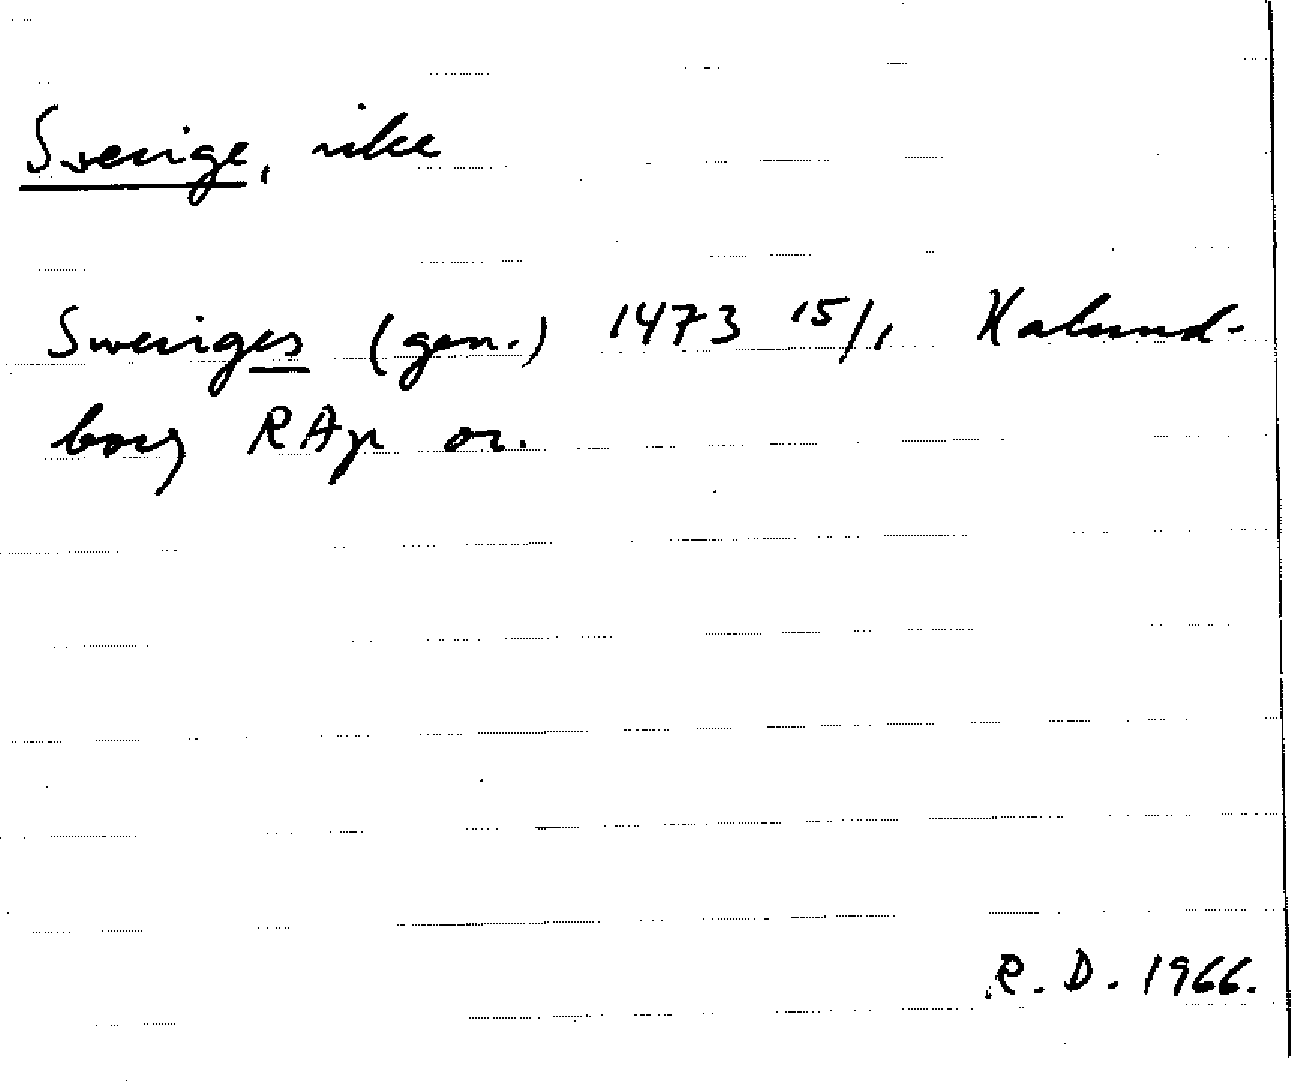 Sverige, rike
Sweriges (gen.) 1473 15/1 Kalund-
borg RAp or.
R. D. 1966.